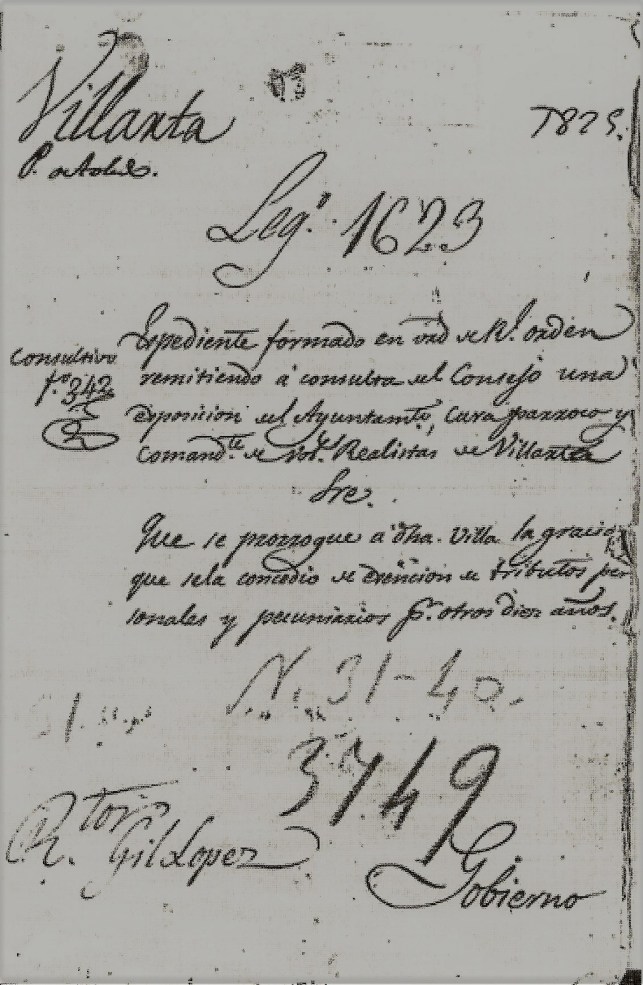 Villarta
1825.
P. de Toledo.
Leg.º 1623
Consultivo
f.º 342
Expediente formado en vrd de Rl. orden
remitiendo á consulta del Consejo una
exposicion del Ayuntamto, Cura parroco y
Comandte. de Vols. Realistas de Villarta
Sre.
Que se prorrogue á dha. Villa la gracia
que se la concedio de exêncion de tributos per
sonales y pecuniarios pr. otros diez años.
N. 31-40.
3749
Rtor.
Gil Lopez
Gobierno